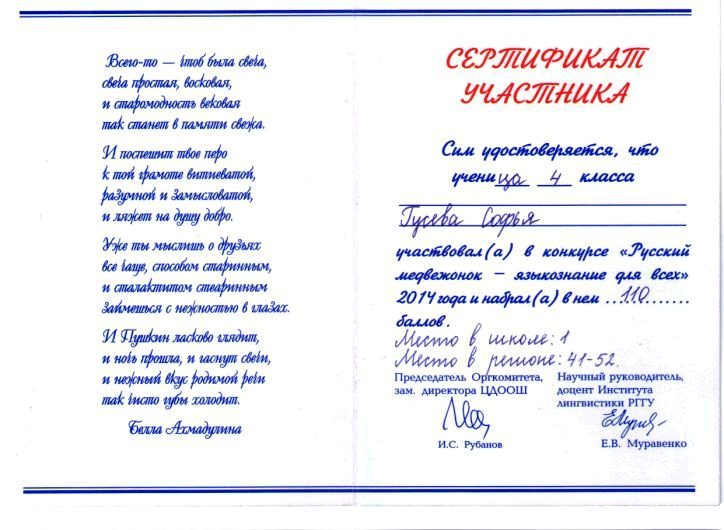 Всего-то — чтоб была свеча,
свеча простая, восковая,
и старомодность вековая
так станет в памяти свежа.
И поспешит твое перо
к той грамоте витиеватой,
разумной и замысловатой,
и ляжет на душу добро.
Уже ты мыслишь о друзьях
все чаще, способом старинным,
и сталактитом стеаринным
займешься с нежностью в глазах.
И Пушкин ласково глядит,
и ночь прошла, и гаснут свечи,
и нежный вкус родимой речи
так чисто губы холодит.
Белла Ахмадулина
СЕРТИФИКАТ
УЧАСТНИКА
Сим удостоверяется, что
ученица 4 класса
Гусева Софья
участвовал(а) в конкурсе «Русский
медвежонок – языкознание для всех»
2014 года и набрал(а) в нем ...110.......
баллов.
Место в школе: 1
Место в регионе: 41-52.
Председатель Оргкомитета,
зам. директора ЦДООШ
И.С. Рубанов
Научный руководитель,
доцент Института
лингвистики РГГУ
Е.В. Муравенко